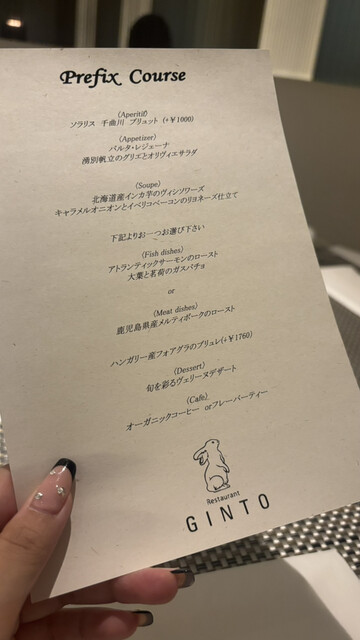 Prefix Course
(Aperitif)
ソラリス 千曲川 ブリュット (+￥1000)
(Appetizer)
パルタ・レジェーナ
湧別帆立のグリエとオリヴィエサラダ
(Soupe)
北海道産インカ芋のヴィシソワーズ
キャラメルオニオンとイベリコベーコンのリヨネーズ仕立て
下記よりお一つお選び下さい
(Fish dishes)
アトランティックサーモンのロースト
大葉と茗荷のガスパチョ
or
(Meat dishes)
鹿児島県産メルティポークのロースト
ハンガリー産フォアグラのブリュレ(+￥1760)
(Dessert)
旬を彩るヴェリーヌデザート
(Cafe)
オーガニックコーヒー orフレーバーティー
Restaurant
GINTO